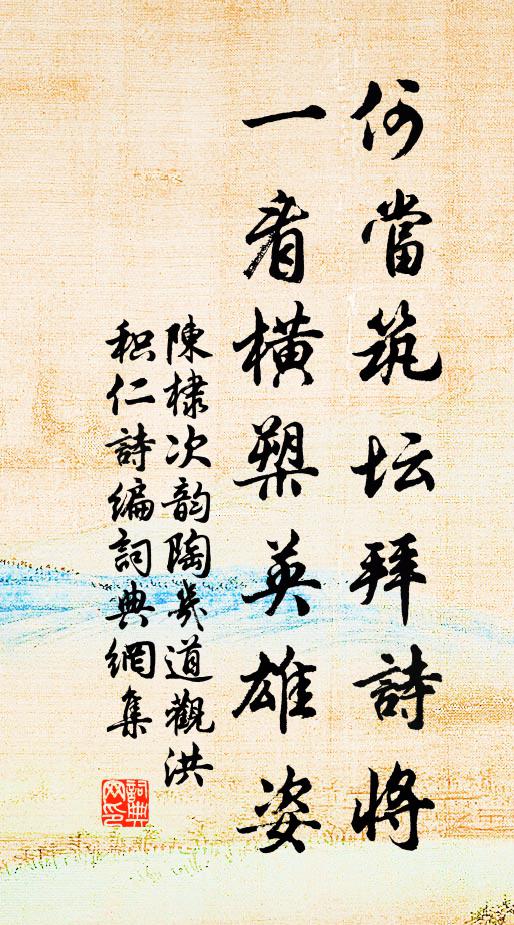 何當筑坛拜詩將
一看橫槊英雄姿
陳棣次韵陶幾道觀洪
积仁詩编詞典網集
詞典
网印